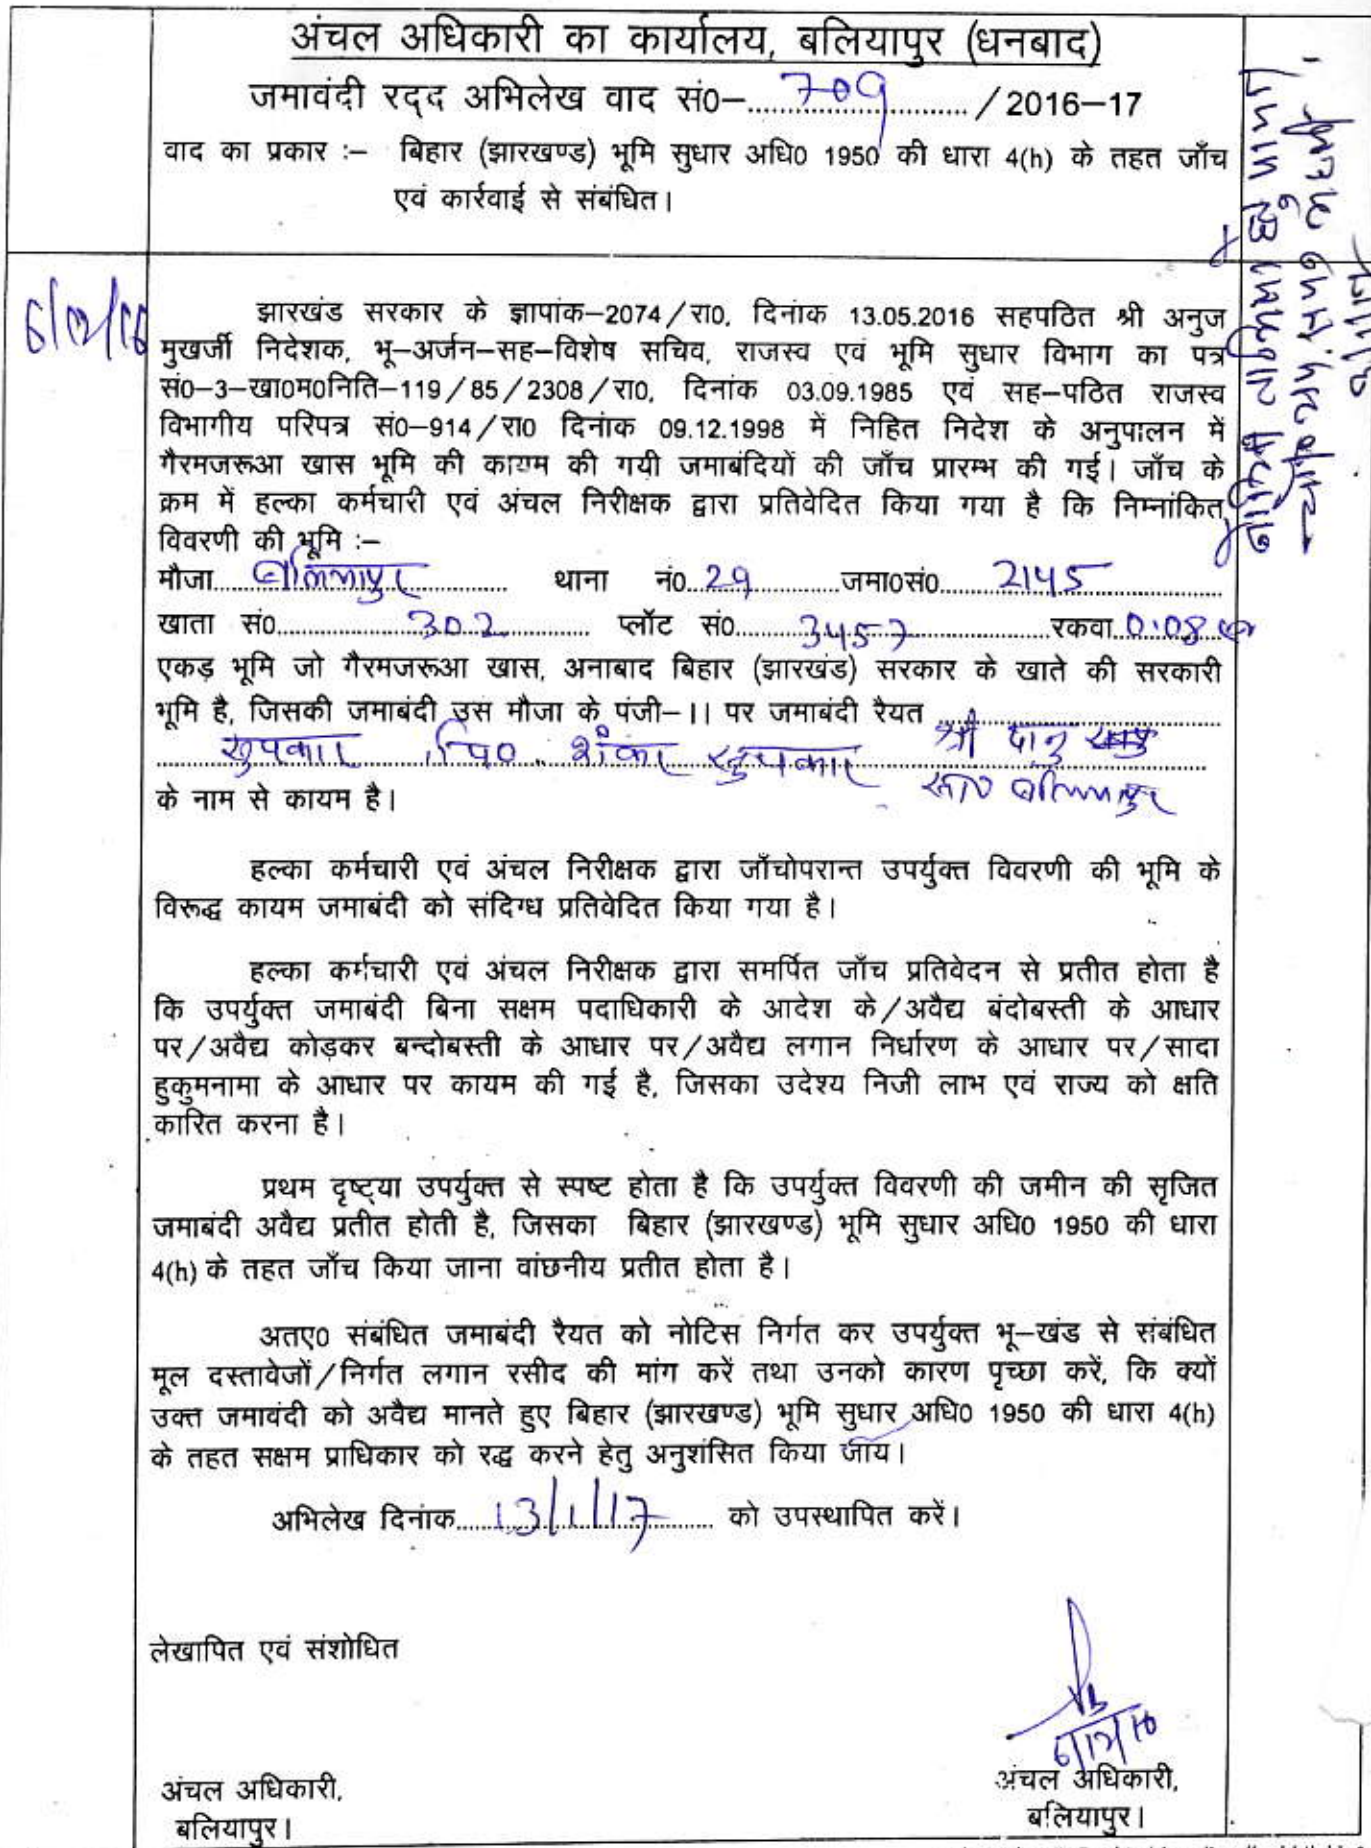 अंचल अधिकारी का कार्यालय, बलियापुर (धनबाद)
जमावंदी रद्द अभिलेख वाद सं0–....709..../2016–17
वाद का प्रकार :– बिहार (झारखण्ड) भूमि सुधार अधि0 1950 की धारा 4(h) के तहत जाँच
एवं कार्रवाई से संबंधित।
6/12/16
झारखंड सरकार के ज्ञापांक–2074/रा0, दिनांक 13.05.2016 सहपठित श्री अनुज
मुखर्जी निदेशक, भू–अर्जन–सह–विशेष सचिव, राजस्व एवं भूमि सुधार विभाग का पत्र
सं0–3–खा0म0निति–119/85/2308/रा0, दिनांक 03.09.1985 एवं सह–पठित राजस्व
विभागीय परिपत्र सं0–914/रा0 दिनांक 09.12.1998 में निहित निदेश के अनुपालन में
गैरमजरूआ खास भूमि की कायम की गयी जमाबंदियों की जाँच प्रारम्भ की गई। जाँच के
क्रम में हल्का कर्मचारी एवं अंचल निरीक्षक द्वारा प्रतिवेदित किया गया है कि निम्नांकित
विवरणी की भूमि :–
मौजा....बलियापुर.... थाना नं0..29....जमा0सं0....2145....
खाता सं0....302.... प्लॉट सं0....3457....रकवा..0.08
एकड़ भूमि जो गैरमजरूआ खास, अनाबाद बिहार (झारखंड) सरकार के खाते की सरकारी
भूमि है, जिसकी जमाबंदी उस मौजा के पंजी–।। पर जमाबंदी रैयत ....
श्री दानु
पि0 शंकर
सा0 बलियापुर
के नाम से कायम है।
हल्का कर्मचारी एवं अंचल निरीक्षक द्वारा जाँचोपरान्त उपर्युक्त विवरणी की भूमि के
विरूद्ध कायम जमाबंदी को संदिग्ध प्रतिवेदित किया गया है।
हल्का कर्मचारी एवं अंचल निरीक्षक द्वारा समर्पित जाँच प्रतिवेदन से प्रतीत होता है
कि उपर्युक्त जमाबंदी बिना सक्षम पदाधिकारी के आदेश के/अवैद्य बंदोबस्ती के आधार
पर/अवैद्य कोड़कर बन्दोबस्ती के आधार पर/अवैद्य लगान निर्धारण के आधार पर/सादा
हुकुमनामा के आधार पर कायम की गई है, जिसका उदेश्य निजी लाभ एवं राज्य को क्षति
कारित करना है।
प्रथम दृष्ट्या उपर्युक्त से स्पष्ट होता है कि उपर्युक्त विवरणी की जमीन की सृजित
जमाबंदी अवैद्य प्रतीत होती है, जिसका बिहार (झारखण्ड) भूमि सुधार अधि0 1950 की धारा
4(h) के तहत जाँच किया जाना वांछनीय प्रतीत होता है।
अतए0 संबंधित जमाबंदी रैयत को नोटिस निर्गत कर उपर्युक्त भू–खंड से संबंधित
मूल दस्तावेजों/निर्गत लगान रसीद की मांग करें तथा उनको कारण पृच्छा करें, कि क्यों
उक्त जमावंदी को अवैद्य मानते हुए बिहार (झारखण्ड) भूमि सुधार अधि0 1950 की धारा 4(h)
के तहत सक्षम प्राधिकार को रद्ध करने हेतु अनुशंसित किया जाय।
अभिलेख दिनांक....13/1/17.... को उपस्थापित करें।
लेखापित एवं संशोधित
6/12/16
अंचल अधिकारी,
बलियापुर।
अंचल अधिकारी,
बलियापुर।